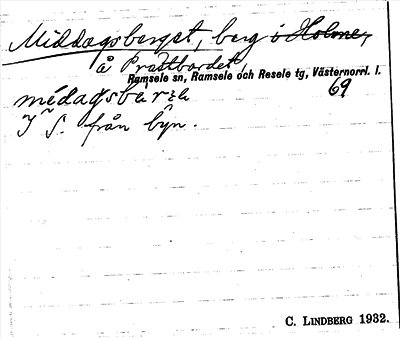 Middagsberget, berg i Holme,
å Prästbordet,
Ramsele sn, Ramsele och Resele tg, Västernorrl. l.
69
médagsbärʒa
I S. från byn.
C. LINDBERG 1932.